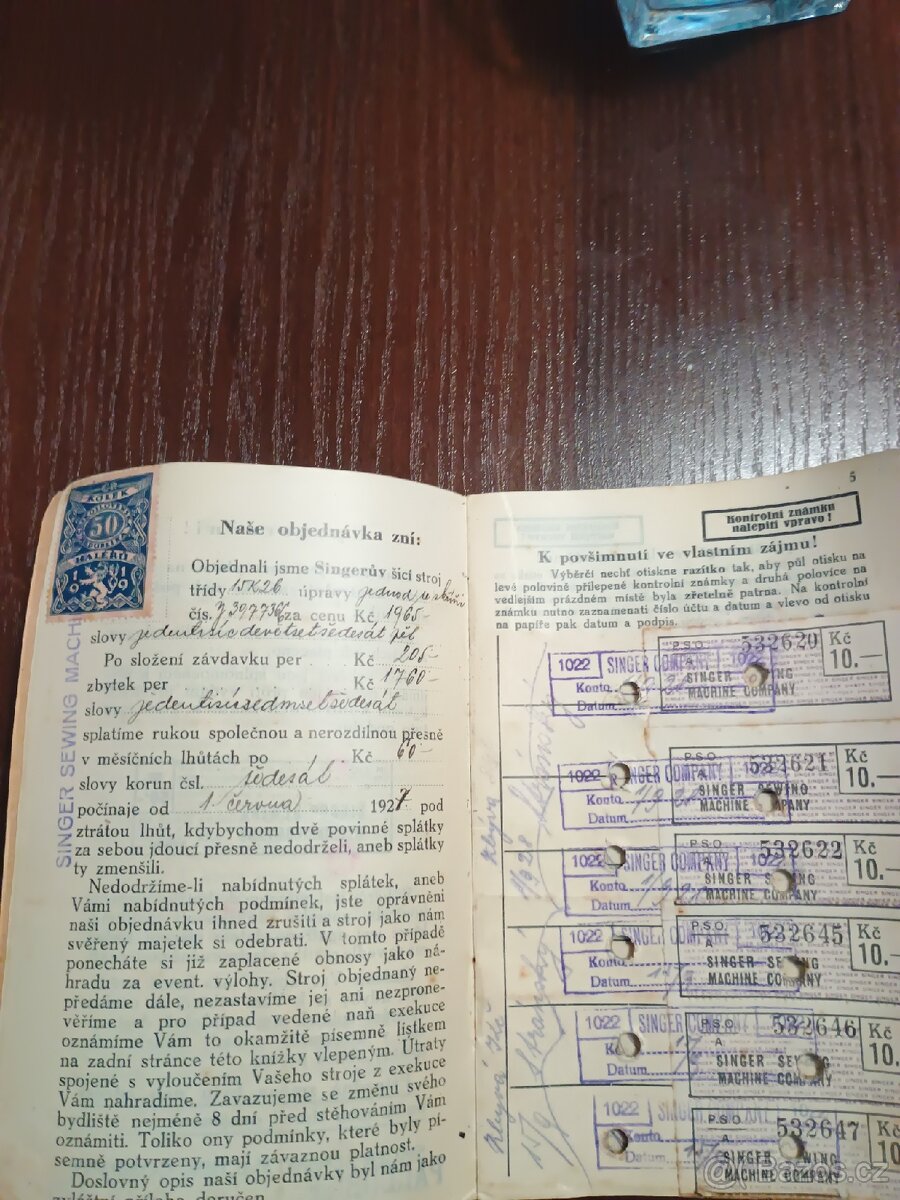 KOLEK
50
HALÉŘŮ
1919
SINGER SEWING MACHI
Naše objednávka zní:
Objednali jsme Singerův šicí stroj
třídy 15K26 úpravy
čís. za cenu Kč 1965
slovy jedentisícdevětsetšedesát pět
Po složení závdavku per Kč 205
zbytek per Kč 1760
slovy jedentisícsedmsetšedesát
splatíme rukou společnou a nerozdílnou přesně
v měsíčních lhůtách po Kč 60
slovy korun čsl. šedesát
počínaje od 1 června 1927 pod
ztrátou lhůt, kdybychom dvě povinné splátky
za sebou jdoucí přesně nedodrželi, aneb splátky
ty zmenšili.
Nedodržíme-li nabídnutých splátek, aneb
Vámi nabídnutých podmínek, jste oprávněni
naši objednávku ihned zrušiti a stroj jako nám
svěřený majetek si odebrati. V tomto případě
ponecháte si již zaplacené obnosy jako ná-
hradu za event. výlohy. Stroj objednaný ne-
předáme dále, nezastavíme jej ani nezprone-
věříme a pro případ vedené naň exekuce
oznámíme Vám to okamžitě písemně lístkem
na zadní stránce této knížky vlepeným. Útraty
spojené s vyloučením Vašeho stroje z exekuce
Vám nahradíme. Zavazujeme se změnu svého
bydliště nejméně 8 dní před stěhováním Vám
oznámiti. Toliko ony podmínky, které byly pí-
semně potvrzeny, mají závaznou platnost.
Doslovný opis naší objednávky byl nám jako
zvláštní příloha doručen
5
Kontrolní známku
nalepiti vpravo!
K povšimnutí ve vlastním zájmu!
Výběrčí nechť otiskne razítko tak, aby půl otisku na
levé polovině přilepené kontrolní známky a druhá polovice na
vedlejším prázdném místě byla zřetelně patrna. Na kontrolní
známku nutno zaznamenati číslo účtu a datum a vlevo od otisku
na papíře pak datum a podpis.
1022 SINGER COMPANY 1022
Konto
Datum
P.S.O. 532620 Kč
10.—
SINGER SEWING
MACHINE COMPANY
1022 SINGER COMPANY 1022
Konto
Datum
P.S.O. 532621 Kč
A 10.—
SINGER SEWING
MACHINE COMPANY
1022 SINGER COMPANY 1022
Konto
Datum
P.S.O. 532622 Kč
A 10.—
SINGER SEWING
MACHINE COMPANY
1022 SINGER COMPANY 1022
Konto
Datum
P.S.O. 532645 Kč
A 10.—
SINGER SEWING
MACHINE COMPANY
1022 SINGER COMPANY
Datum
P.S.O. 532646 Kč
A 10.
SINGER SEWING
MACHINE COMPANY
1022 SINGER COMPANY
Konto
Datum
P.S.O. 532647 Kč
A 10
SINGER SEWING
MACHINE COMPANY
Bazos.cz